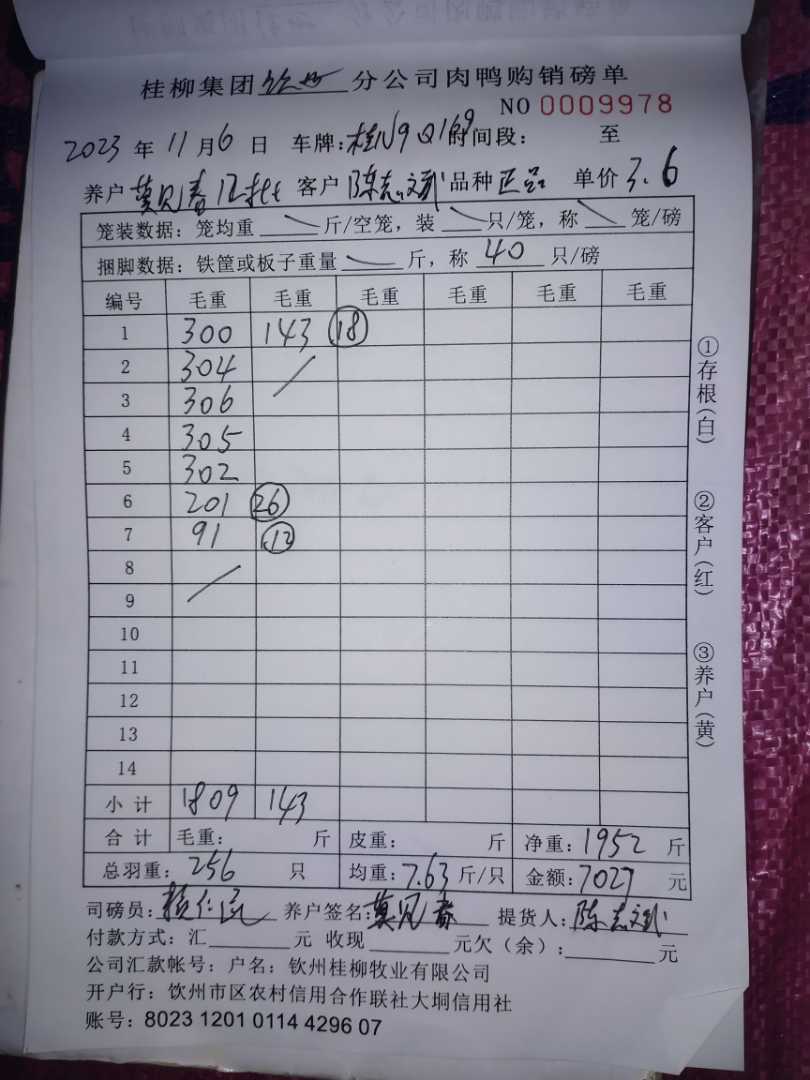 桂柳集团钦州分公司肉鸭购销磅单
NO 0009978
2023年11月6日 车牌：桂N9Q169时间段： 至
养户莫见春 客户陈志斌品种正品 单价3.6
笼装数据：笼均重 斤/空笼，装 只/笼，称 笼/磅
捆脚数据：铁筐或板子重量 斤，称 40 只/磅
编号 毛重 毛重 毛重 毛重 毛重 毛重
1 300 143 18
2 304
3 306
4 305
5 302
6 201 26
7 91 12
8
9
10
11
12
13
14
小计 1809 143
合计 毛重： 斤 皮重： 斤 净重：1952 斤
总羽重：256 只 均重：7.63斤/只 金额：7027 元
司磅员： 养户签名：莫见春 提货人：陈志斌
付款方式：汇 元 收现 元欠（余）： 元
公司汇款帐号：户名：钦州桂柳牧业有限公司
开户行：饮州市区农村信用合作联社大垌信用社
账号：8023 1201 0114 4296 07
①存根（白）
②客户（红）
③养户（黄）